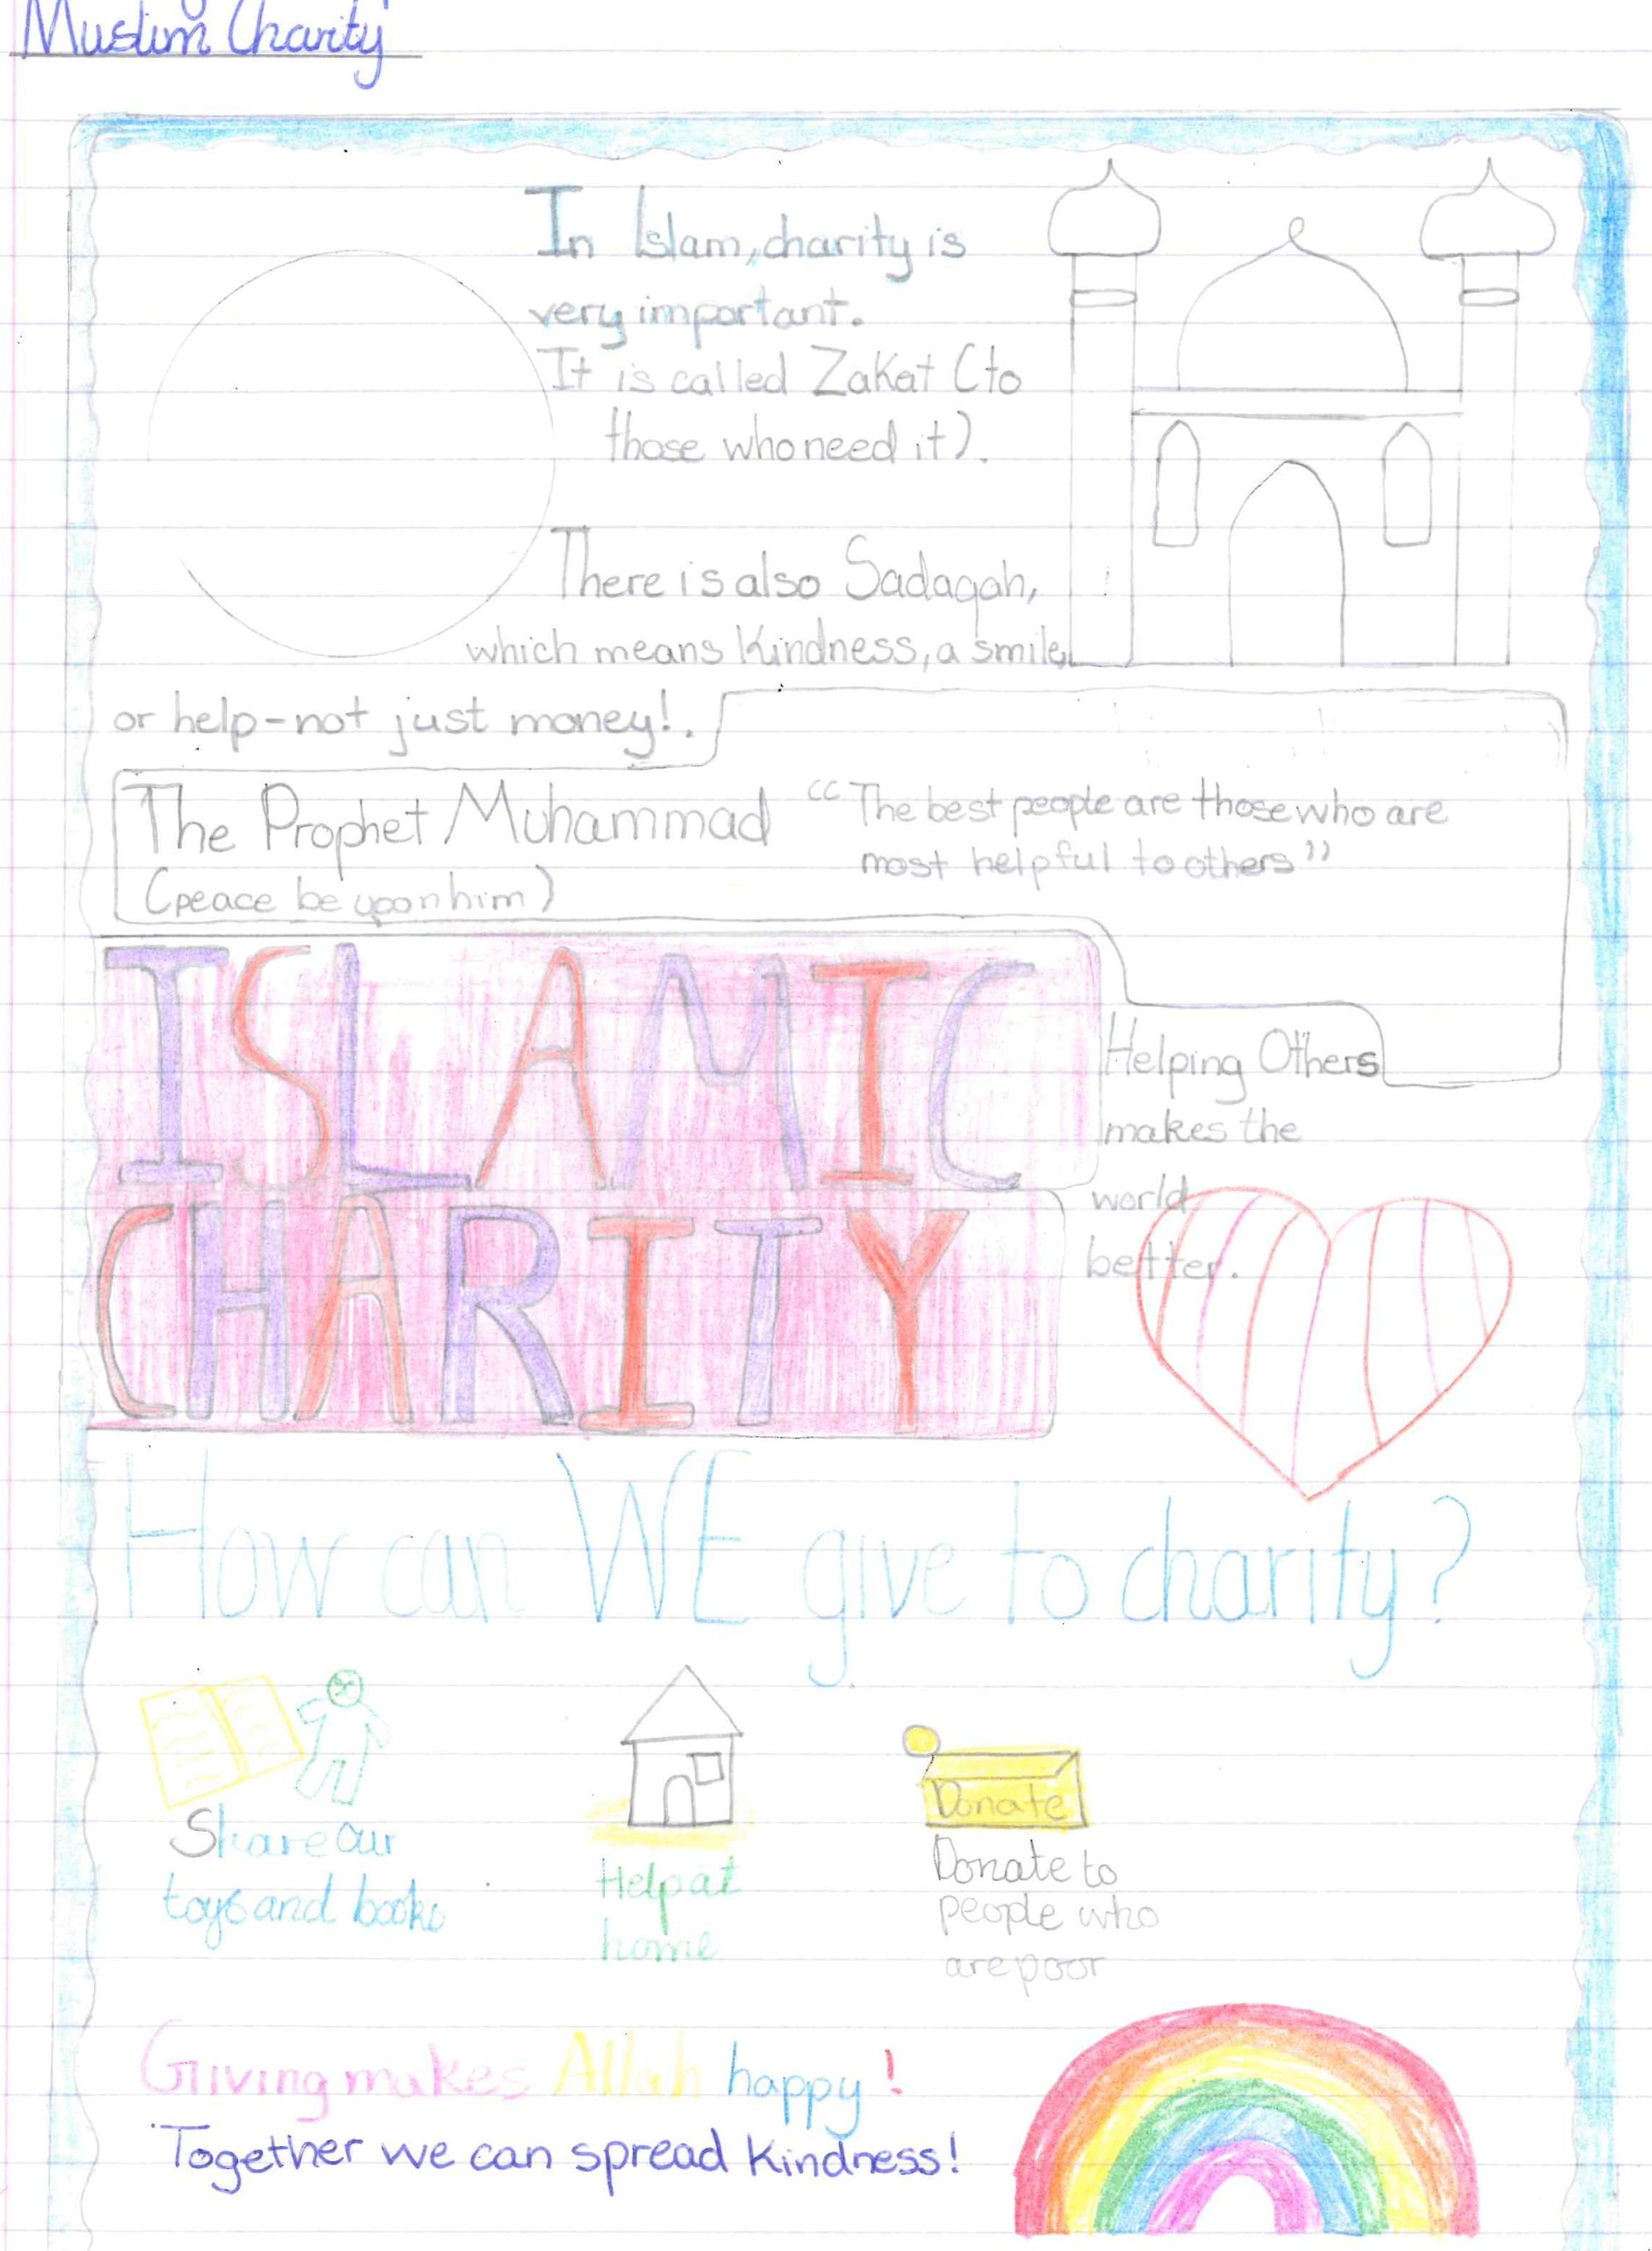 Muslim Charity
In Islam, charity is
very important.
It is called Zakat (to
those who need it).
There is also Sadaqah,
which means Kindness, a smile,
or help-not just money!.
The Prophet Muhammad
(peace be upon him)
“The best people are those who are
most helpful to others”
ISLAMIC
CHARITY
Helping Others
makes the
world
better.
How can WE give to charity?
Share our
toys and books
Help at
home
Donate
Donate to
people who
are poor
Giving makes Allah happy!
Together we can spread kindness!